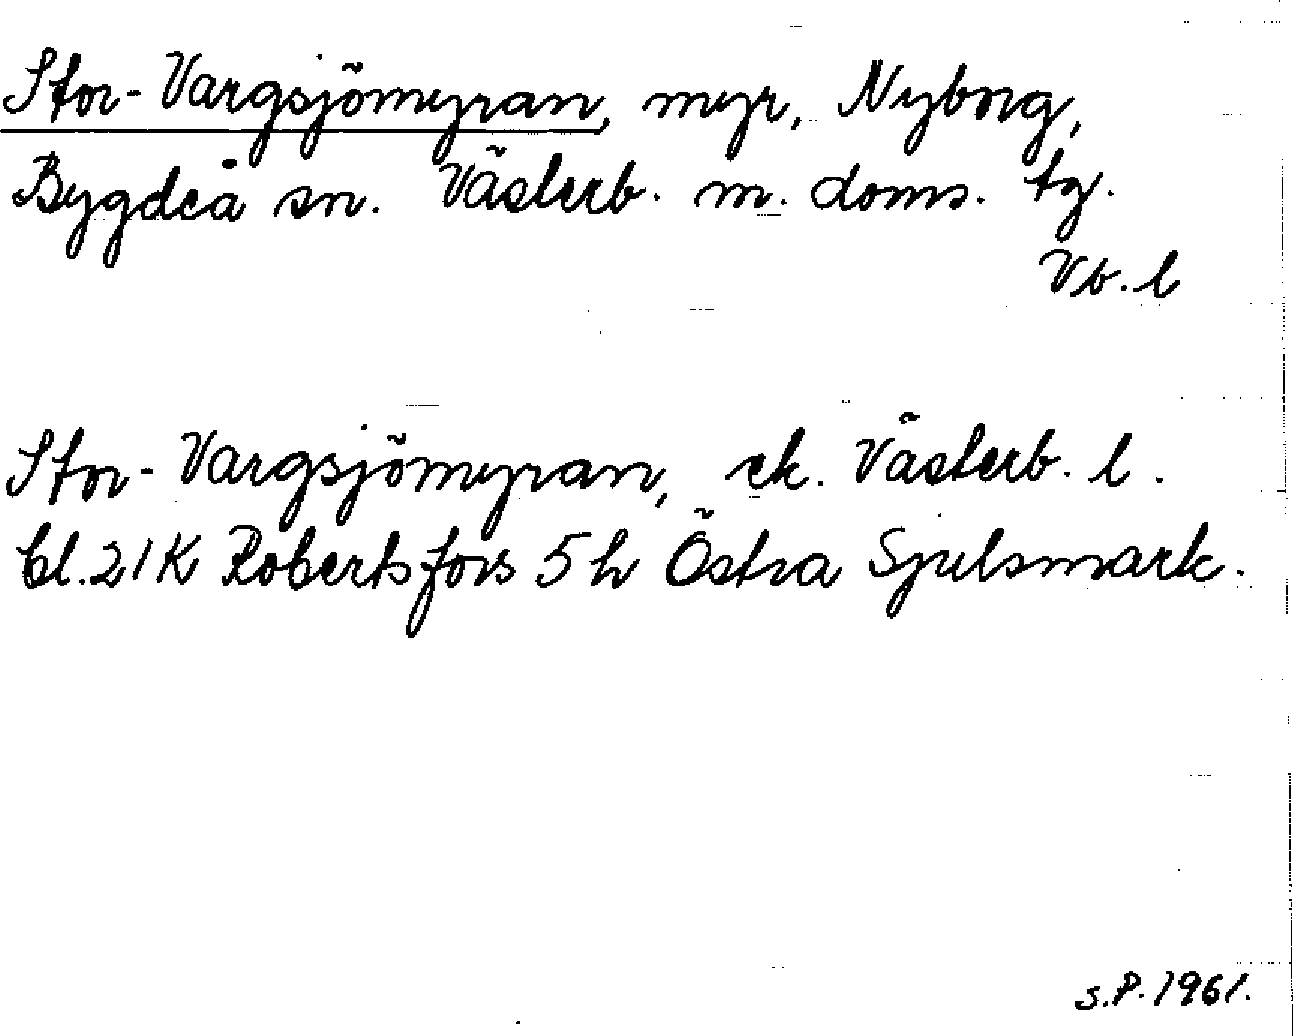 Stor-Vargsjömyran, myr, Nyborg,
Bygdeå sn. Västerb. m. doms. tg.
Vb. l
Stor-Vargsjömyran, ek. Västerb. l.
bl. 21K Robertsfors 5 h Östra Sjulsmark.
S.P. 1961.